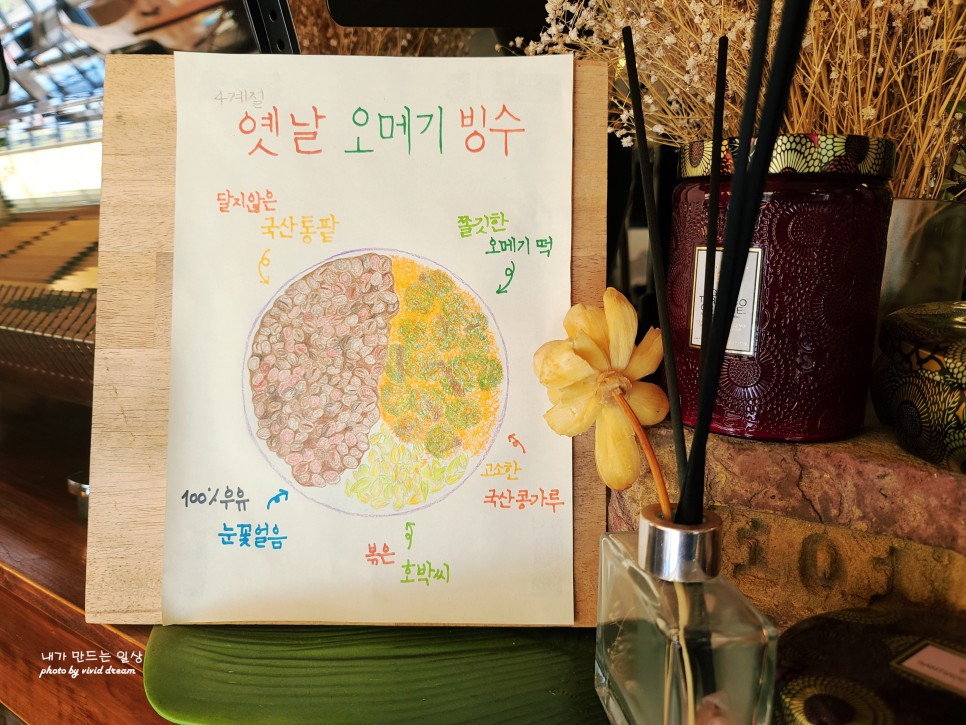 4계절
옛날 오메기 빙수
달지않은
국산통팥
쫄깃한
오메기 떡
고소한
국산콩가루
100%우유
눈꽃얼음
볶은
호박씨
101
내가 만드는 일상
photo by vivid dream